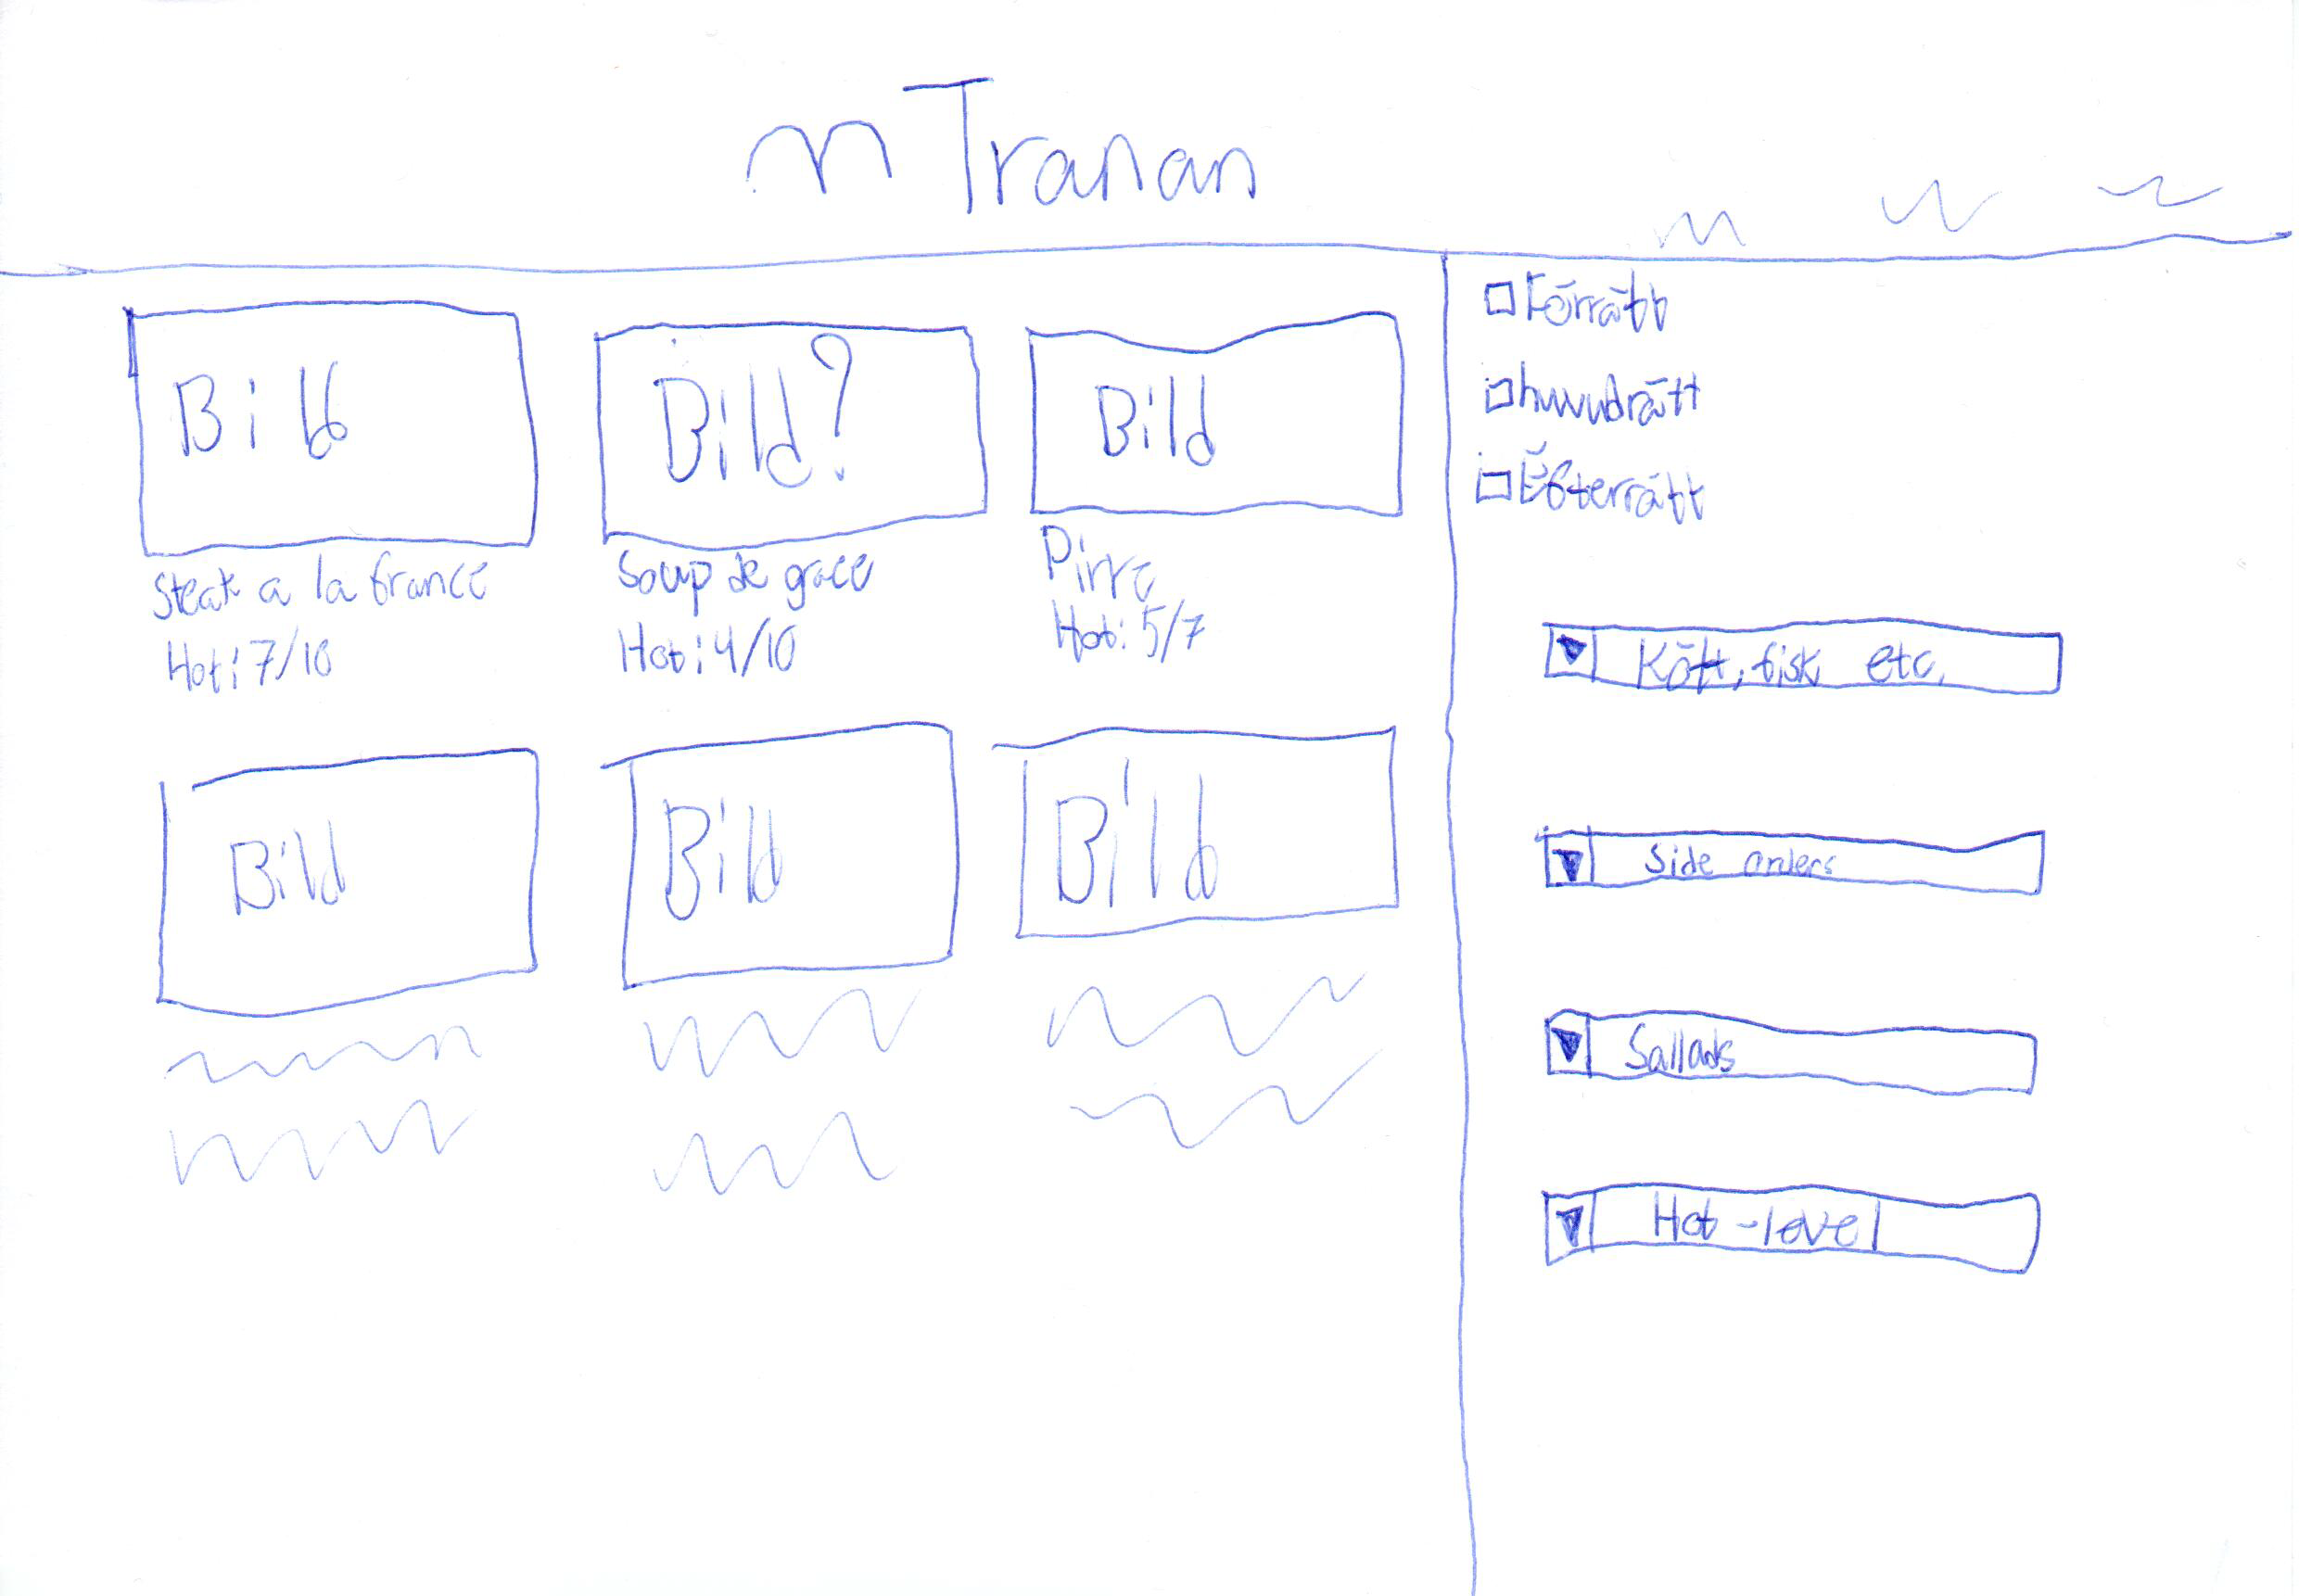 Tranan
Bild
Bild?
Bild
Steak a la france
Hot: 7/10
Soup de grace
Hot: 4/10
Hot: 5/7
Bild
Bild
Bild
Förrätt
huvudrätt
Efterrätt
Kött, fisk etc.
Side orders
Sallads
Hot-level